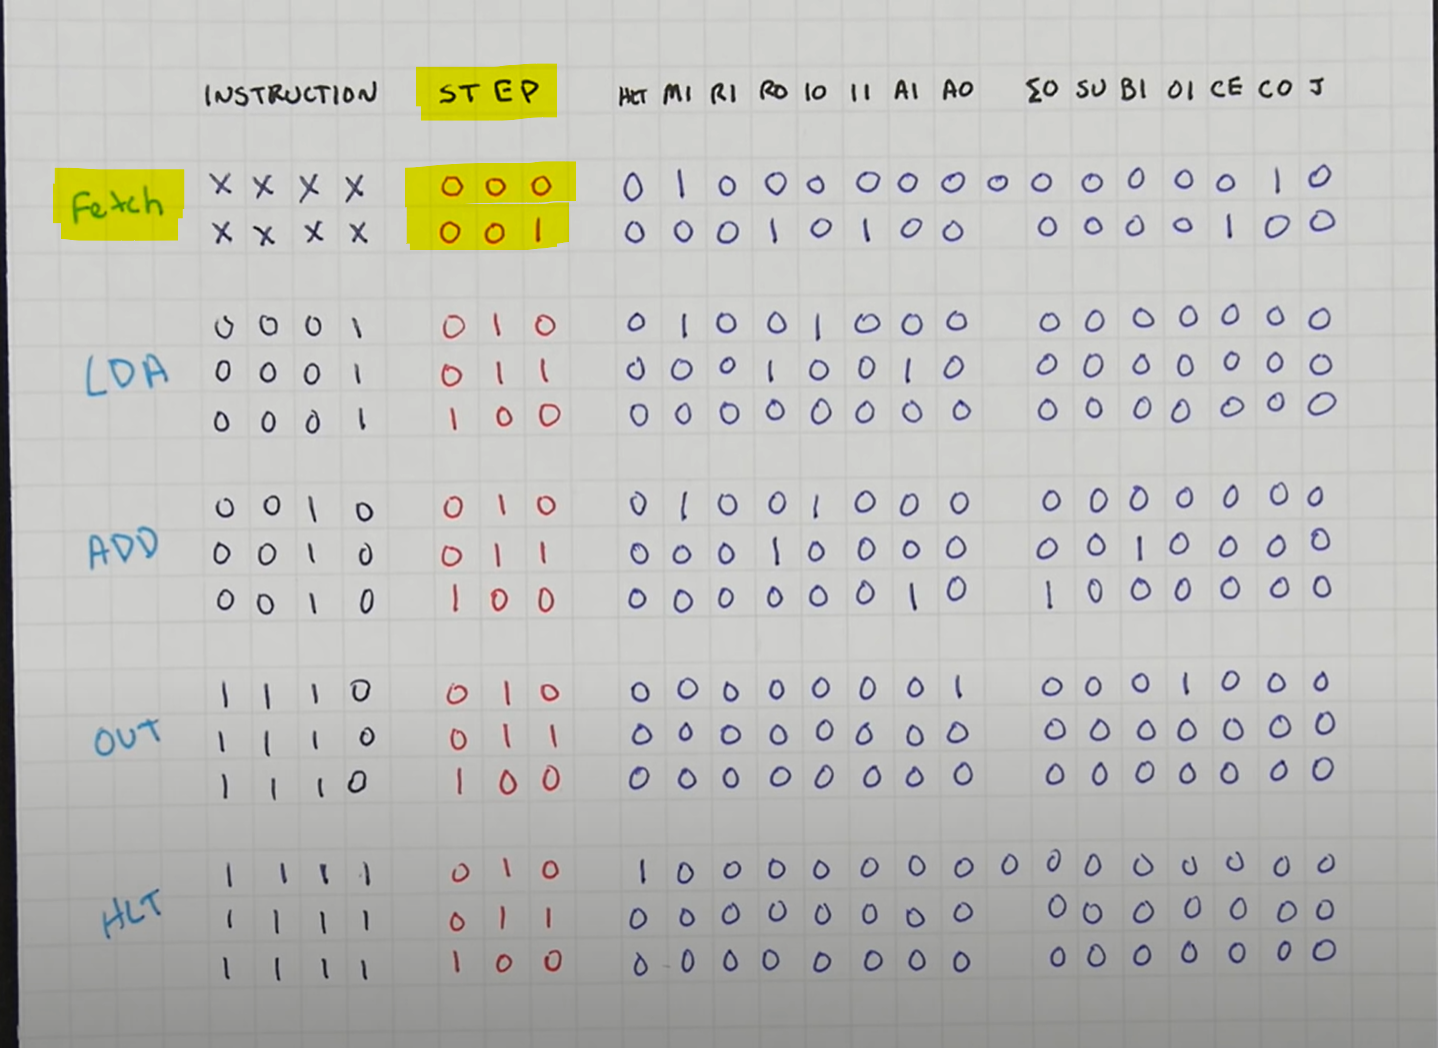 INSTRUCTION STEP HLT MI RI RO IO II AI AO ΣO SU BI OI CE CO J
Fetch X X X X 0 0 0 0 1 0 0 0 0 0 0 0 0 0 0 0 0 1 0
X X X X 0 0 1 0 0 0 1 0 1 0 0 0 0 0 0 1 0 0
LDA 0 0 0 1 0 1 0 0 1 0 0 1 0 0 0 0 0 0 0 0 0 0
0 0 0 1 0 1 1 0 0 0 1 0 0 1 0 0 0 0 0 0 0 0
0 0 0 1 1 0 0 0 0 0 0 0 0 0 0 0 0 0 0 0 0 0
ADD 0 0 1 0 0 1 0 0 1 0 0 1 0 0 0 0 0 0 0 0 0 0
0 0 1 0 0 1 1 0 0 0 1 0 0 0 0 0 0 1 0 0 0 0
0 0 1 0 1 0 0 0 0 0 0 0 0 1 0 1 0 0 0 0 0 0
OUT 1 1 1 0 0 1 0 0 0 0 0 0 0 0 1 0 0 0 1 0 0 0
1 1 1 0 0 1 1 0 0 0 0 0 0 0 0 0 0 0 0 0 0 0
1 1 1 0 1 0 0 0 0 0 0 0 0 0 0 0 0 0 0 0 0 0
HLT 1 1 1 1 0 1 0 1 0 0 0 0 0 0 0 0 0 0 0 0 0 0 0
1 1 1 1 0 1 1 0 0 0 0 0 0 0 0 0 0 0 0 0 0 0
1 1 1 1 1 0 0 0 0 0 0 0 0 0 0 0 0 0 0 0 0 0